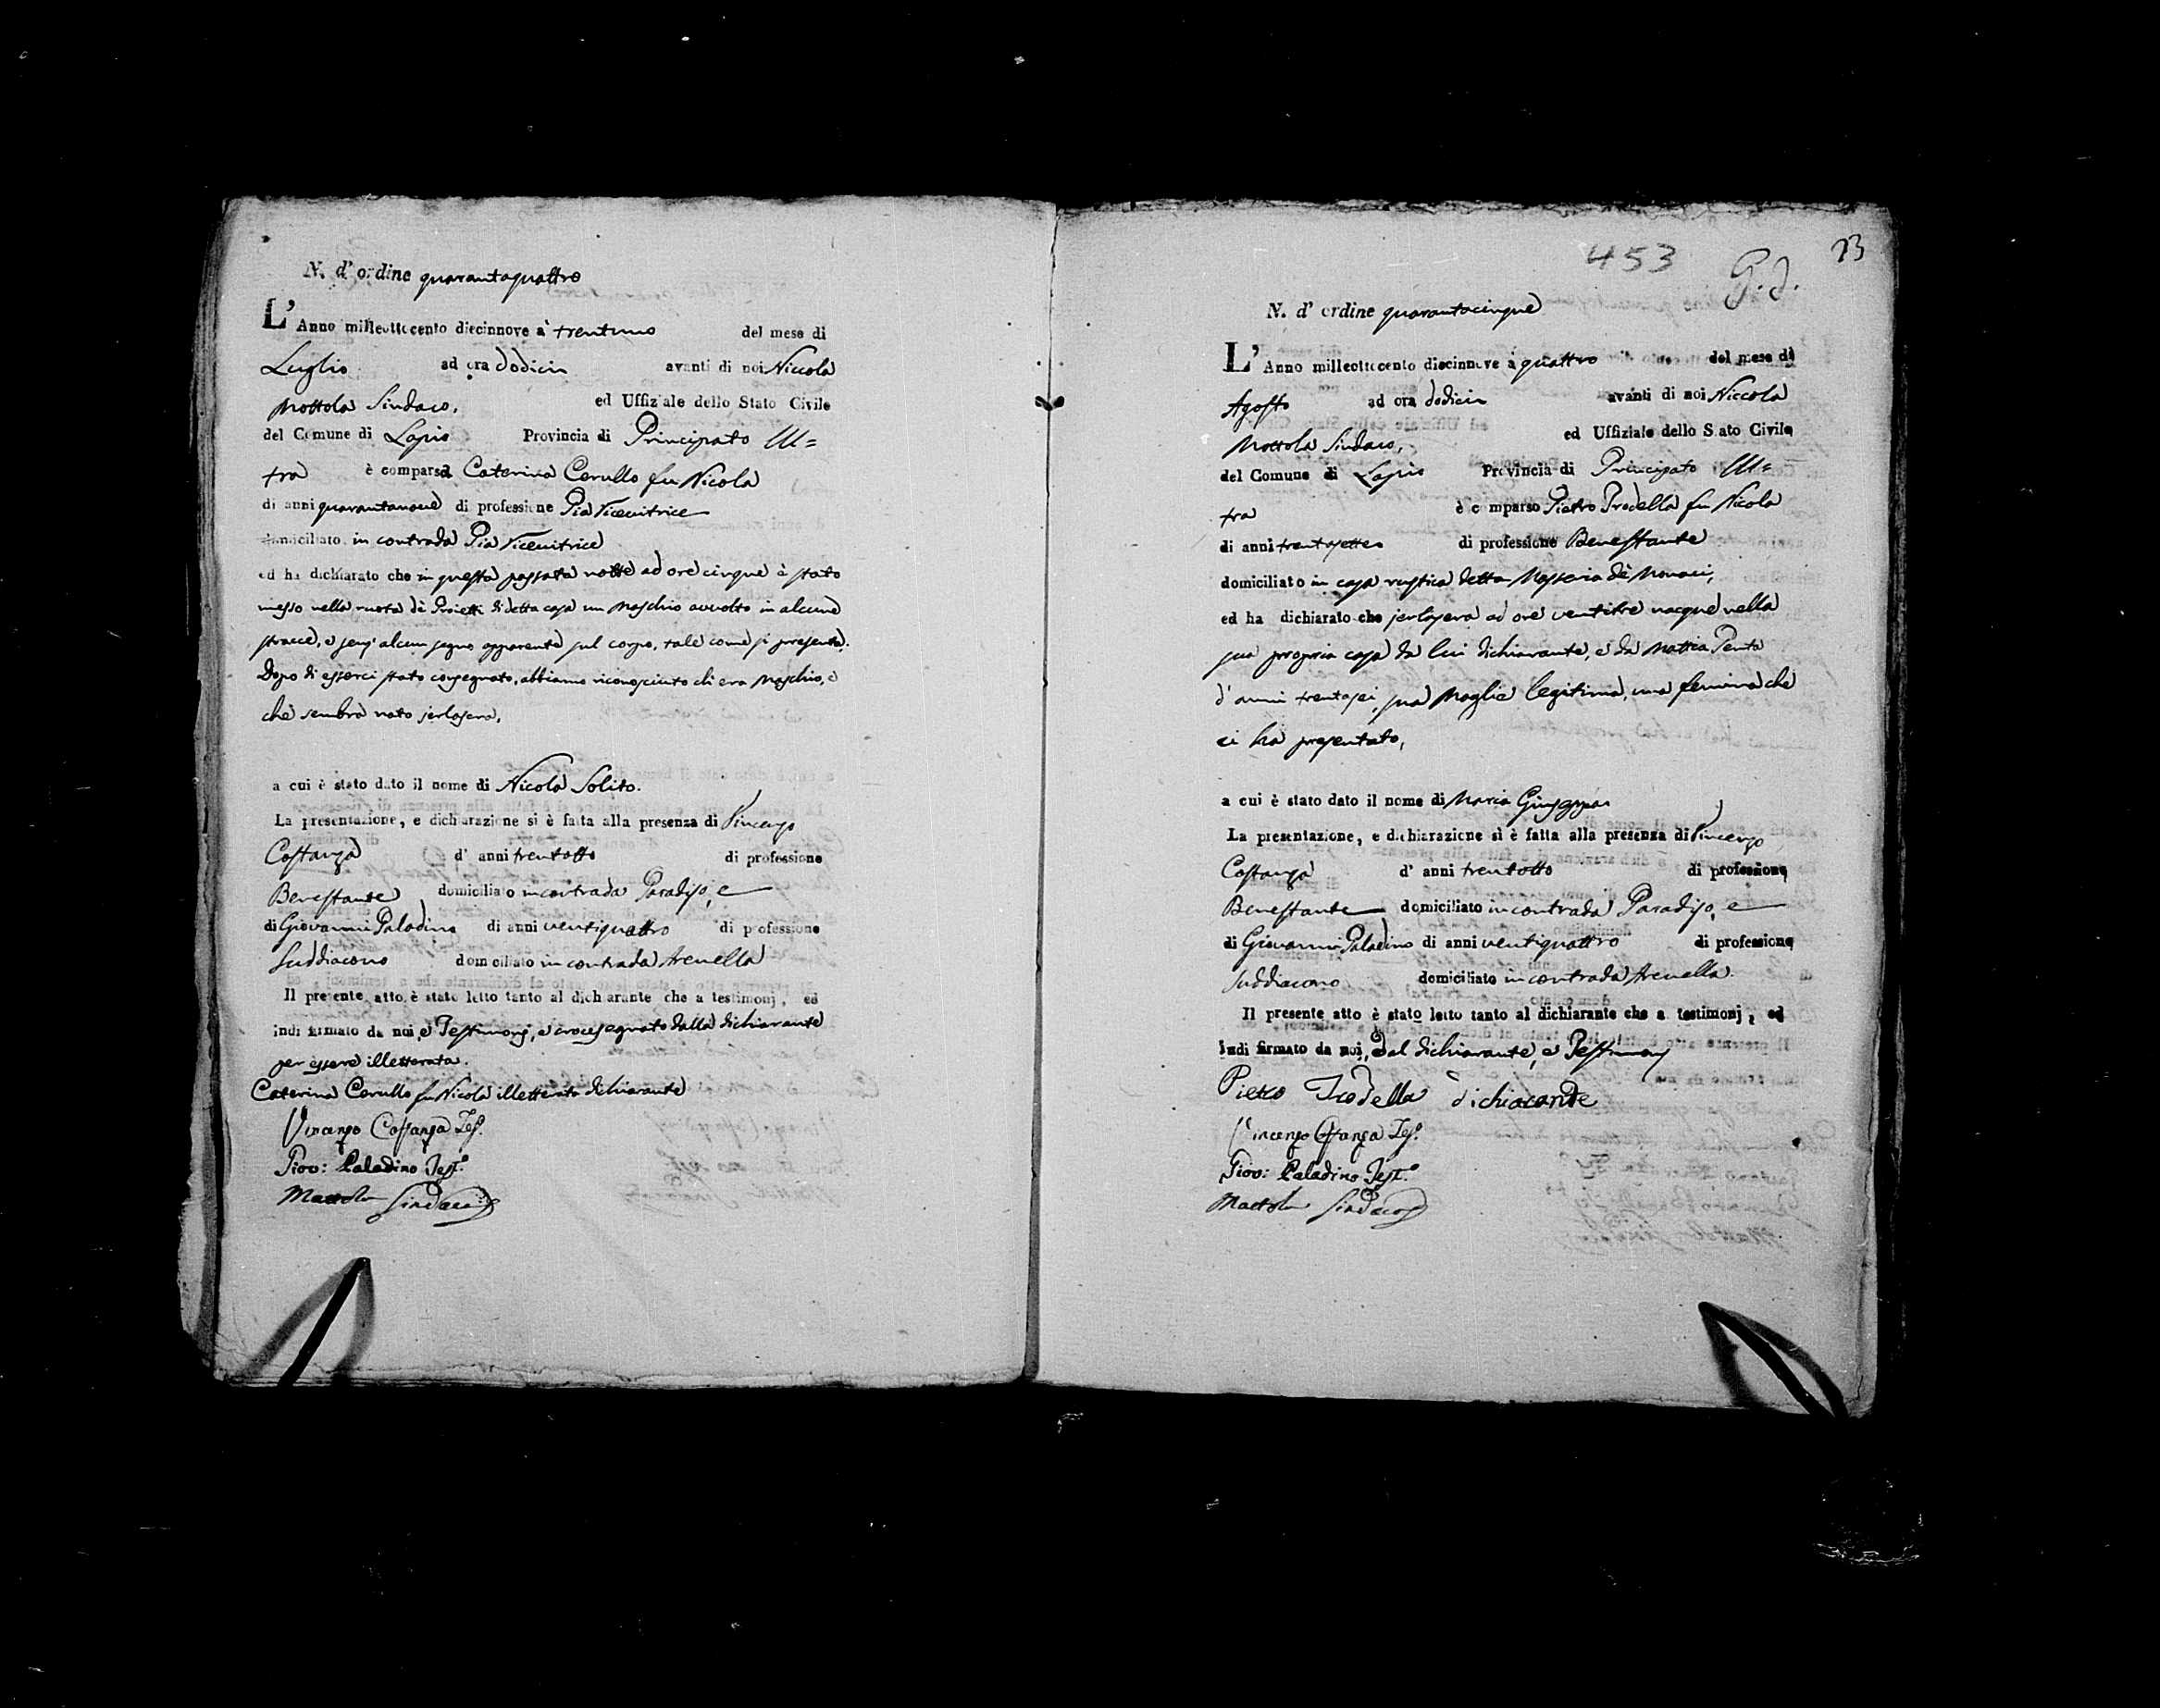 N. d' ordine quarantaquattro
L' Anno milleottocento diecinnove à trentuno del mese di
Luglio ad ora dodici avanti di noi Niccola
Mottola Sindaco, ed Uffiziale dello Stato Civile
del Comune di Lapio Provincia di Principato Ul=
tra è comparsa Caterina Cerullo fu Nicola
di anni quarantanove di professione Pia Ricevitrice
domiciliato in contrada Pia Ricevitrice
ed ha dichiarato che in questa passata notte ad ore cinque è stato
messo nella ruota de' Proietti di detta casa un Maschio avvolto in alcune
stracce, e senz' alcun segno apparente sul corpo, tale come si presenta.
Dopo di esserci stato consegnato, abbiamo riconosciuto di era Maschio, e
che sembra nato jerlasera,
a cui è stato dato il nome di Nicola Solito.
La presentazione, e dichiarazione si è fatta alla presenza di Vincenzo
Costanza d' anni trentotto di professione
Benestante domiciliato in contrada Paradiso, e
di Giovanni Paladino di anni ventiquattro di professione
Suddiacono domiciliato in contrada Arenella
Il presente atto è stato letto tanto al dichiarante che a testimonj, ed
indi firmato da noi, e Testimonj, e crocesegnato dalla dichiarante
per essere illetterata.
Caterina Cerullo fu Nicola illetterata dichiarante
Vincenzo Costanza Tes.º
Giov: Paladino Test.º
Mottola Sindaco
453 G. J. 23
N. d' ordine quarantacinque
L' Anno milleottocento diecinnove à quattro del mese di
Agosto ad ora dodici avanti di noi Niccola
Mottola Sindaco, ed Uffiziale dello Stato Civile
del Comune di Lapio Provincia di Principato Ul=
tra è comparso Pietro Trodella fu Nicola
di anni trentasette di professione Benestante
domiciliato in casa rustica detta Masseria de' Monaci,
ed ha dichiarato che jerlasera ad ore ventitre nacque nella
sua propria casa da lui dichiarante, e da Mattia Penta
d' anni trentasei, sua Moglie legitima, una femina che
ci ha presentato,
a cui è stato dato il nome di Maria Giuseppa
La presentazione, e dichiarazione si è fatta alla presenza di Vincenzo
Costanza d' anni trentotto di professione
Benestante domiciliato in contrada Paradiso, e
di Giovanni Paladino di anni ventiquattro di professione
Suddiacono domiciliato in contrada Arenella.
Il presente atto è stato letto tanto al dichiarante che a testimonj, ed
indi firmato da noi, dal dichiarante, e Testimonj
Pietro Trodella dichiarante
Vincenzo Costanza Tes.º
Giov: Paladino Test.º
Mottola Sindaco